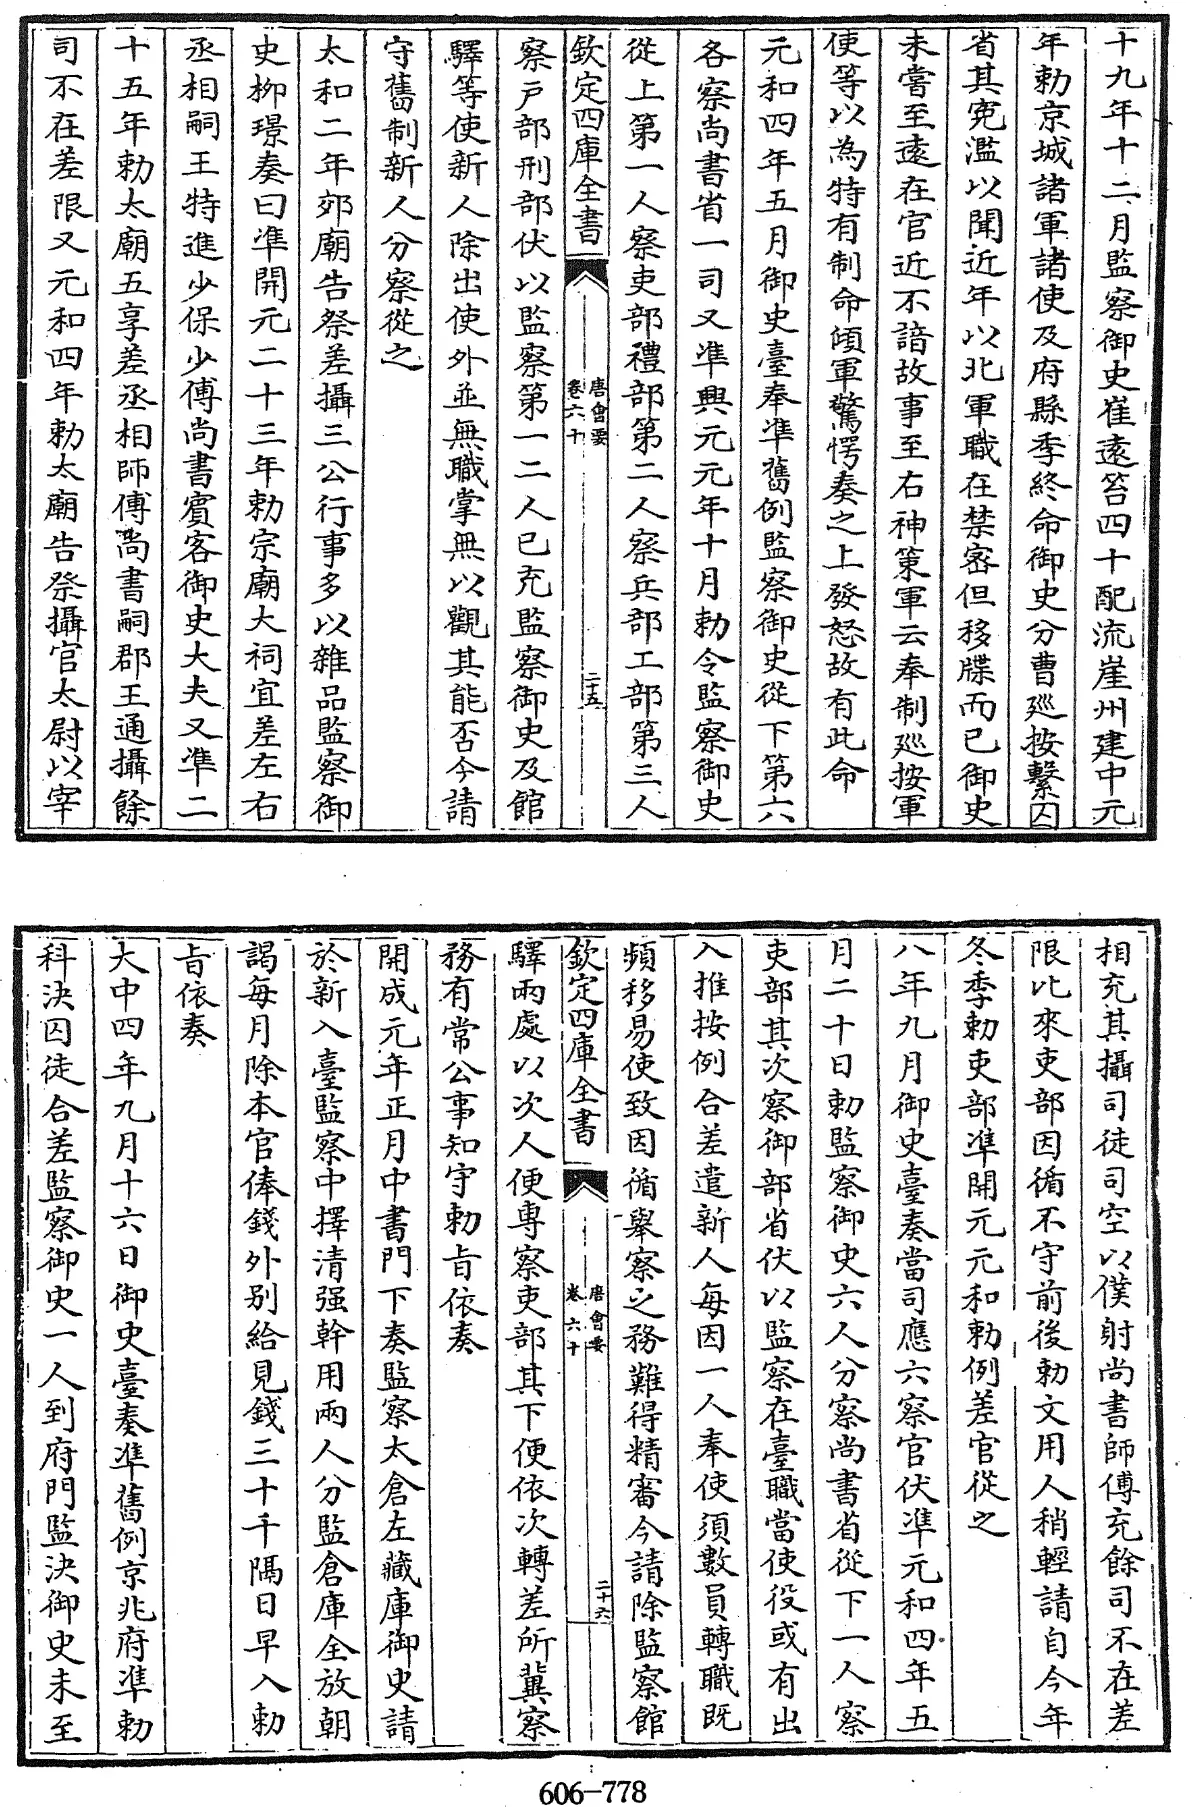 十九年十二月監察御史崔遠笞四十配流崖州建中元
年勅京城諸軍諸使及府縣季終命御史分曹廵按繫囚
省其寃濫以聞近年以北軍職在禁宻但移牒而已御史
未嘗至遠在官近不諳故事至右神策軍云奉制廵按軍
使等以為特有制命頃軍驚愕奏之上發怒故有此命
元和四年五月御史臺奏凖舊例監察御史從下第六
各察尚書省一司又凖興元元年十月勅令監察御史
從上第一人察吏部禮部第二人察兵部工部第三人
欽定四庫全書
唐會要
卷六十
二十五
察戸部刑部伏以監察第一二人已充監察御史及館
驛等使新人除出使外並無職掌無以觀其能否今請
守舊制新人分察從之
太和二年郊廟告祭差攝三公行事多以雜品監察御
史栁璟奏曰凖開元二十三年勅宗廟大祠宜差左右
丞相嗣王特進少保少傅尚書賓客御史大夫又凖二
十五年勅太廟五享差丞相師傅尚書嗣郡王通攝餘
司不在差限又元和四年勅太廟告祭攝官太尉以宰
相充其攝司徒司空以僕射尚書師傅充餘司不在差
限比來吏部因循不守前後勅文用人稍輕請自今年
冬季勅吏部凖開元元和勅例差官從之
八年九月御史臺奏當司應六察官伏凖元和四年五
月二十日勅監察御史六人分察尚書省從下一人察
吏部其次察御部省伏以監察在臺職當使役或有出
入推按例合差遣新人每因一人奉使須數員轉職既
頻移易使致因循舉察之務難得精審今請除監察館
欽定四庫全書
唐會要
卷六十
二十六
驛兩處以次人便専察吏部其下便依次轉差所冀察
務有常公事知守勅旨依奏
開成元年正月中書門下奏監察太倉左藏庫御史請
於新入臺監察中擇清强幹用兩人分監倉庫全放朝
謁每月除本官俸錢外別給見錢三十千隔日早入勅
旨依奏
大中四年九月十六日御史臺奏凖舊例京兆府凖勅
科決囚徒合差監察御史一人到府門監決御史未至
606-778